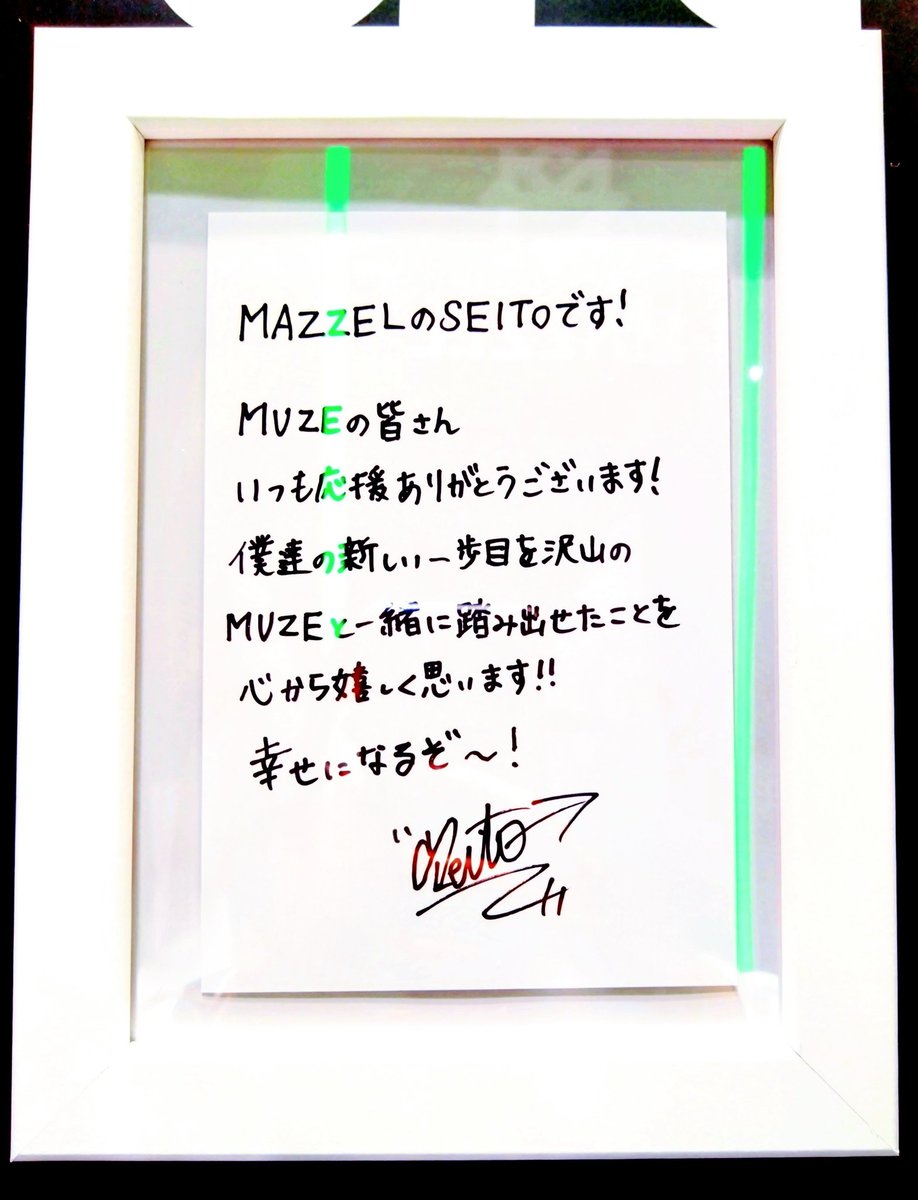 MAZZELのSEITOです!
MUZEの皆さん
いつも応援ありがとうございます!
僕達の新しい一歩目を沢山の
MUZEと一緒に踏み出せたことを
心から嬉しく思います!!
幸せになるぞ〜!
Seito